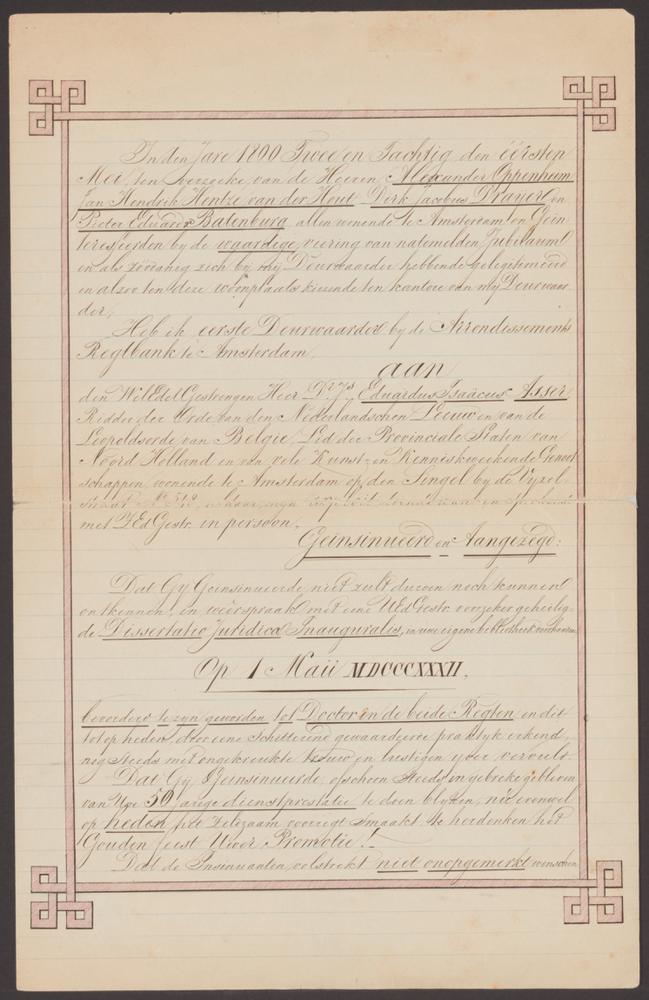 In den Jare 1800 Twee en Tachtig den eersten
Mei, ten verzoeke van de Heeren, Alexander Oppenheim
Jan Hendrik Hentze van der Hout Dirk Jacobus Drayer en
Pieter Eduard Batenburg allen wonende te Amsterdam en Gein
teresseerden by de waardige viering van natemelden Jubileum
en als zoodanig zich by my Deurwaarder hebbende gelegitimeerd
en alzoo ten deze woonplaats kiezende ten kantore van my Deurwaar
der;
Heb ik eerste Deurwaarder by de Arrondissements
Regtbank te Amsterdam,
aan
den WelEdelGestrengen Heer Eduardus Isaäcus Asser
Ridder der Orde van den Nederlandschen Leeuw en van de
Leopoldsorde van Belgie, Lid der Provinciale Staten van
Noord Holland en van vele Kunst- en Kenniskweekende Genoot
schappen, wonende te Amsterdam op den Singel by de Vyzel
straat No myn exploit doende aan en sprekende
met ZEdGestr. in persoon,
Geinsinueerd en Aangezegd:
Dat Gy Geinsinueerde, niet zult durven noch kunnen
ontkennen, in weerspraak met eene UEdGestr. voorzeker geheilig-
de Dissertatio Juridica Inauguralis, in uwe eigene bibliotheek voorhanden
Op 1 Maii MDCCCXXXII,
bevorderd te zyn geworden tot Doctor in de beide Regten, en dit
tot op heden, door eene schitterend gewaardeerde praktyk erkend,
nog steeds met ongekreukte trouw en lustigen yver vervult.
Dat Gij Geinsinueerde, ofschoon steeds in gebreke gebleven
van Uwe 50 jarige dienstprestatie te doen blyken, nu evenwel
op heden het zeldzaam voorregt smaakt te herdenken het
Gouden feest Uwer Promotie!_
Dat de Insinuanten volstrekt niet onopgemerkt wenschen